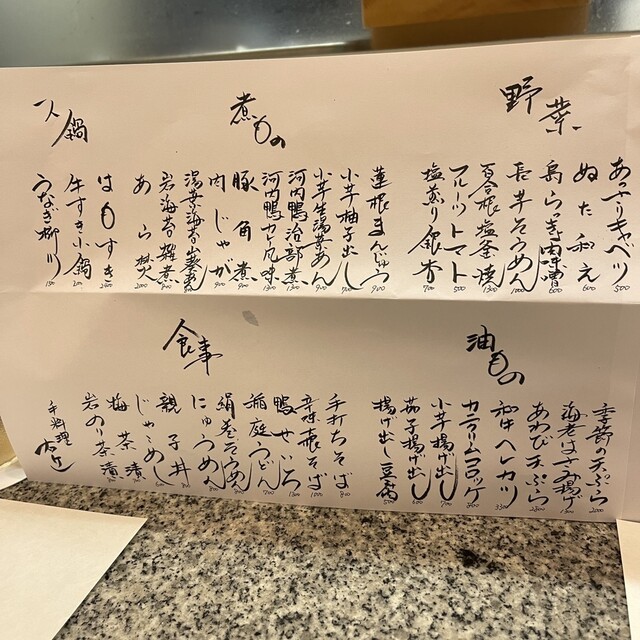 野菜
あっさりキャベツ 500
ぬた和え 600
島らっきょ肉味噌 600
長芋そうめん 1000
百合根塩釜焼 1300
フルーツトマト 500
塩煎り銀杏 700
煮もの
蓮根まんじゅう 900
小芋柚子出し 700
小芋生湯葉あん 900
河内鴨治部煮 1300
河内鴨カレー風味 1300
豚角煮 900
肉じゃが 900
湯葉海苔山葵煮
岩海苔雑煮
あら焚 2000
一人鍋
はもすき
牛すき小鍋
うなぎ柳川
油もの
季節の天ぷら 2000
海老はさみ揚げ
あわび天ぷら 2800
和牛ヘレカツ 3300
カニクリームコロッケ
小芋揚げ出し 700
茄子揚げ出し 600
揚げ出し豆腐 500
食事
手打ちそば 800
辛味大根そば 1000
鴨せいろ 1300
稲庭うどん 700
絹巻そうめん
にゅうめん
親子丼
じゃこめし
梅茶漬
岩のり茶漬
手料理